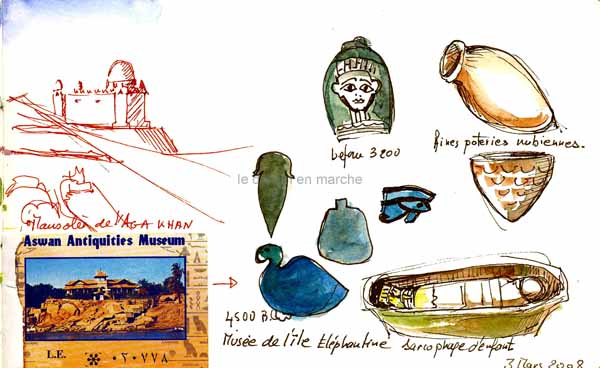 before 3200
fines poteries nubiennes.
le en marche
Mausolée de l'AGA KHAN
Aswan Antiquities Museum
L.E. ٠٢٠٧٧٨
4500 B.
Musée de l'île Eléphantine
sarcophage d'enfant
3 Mars 2008